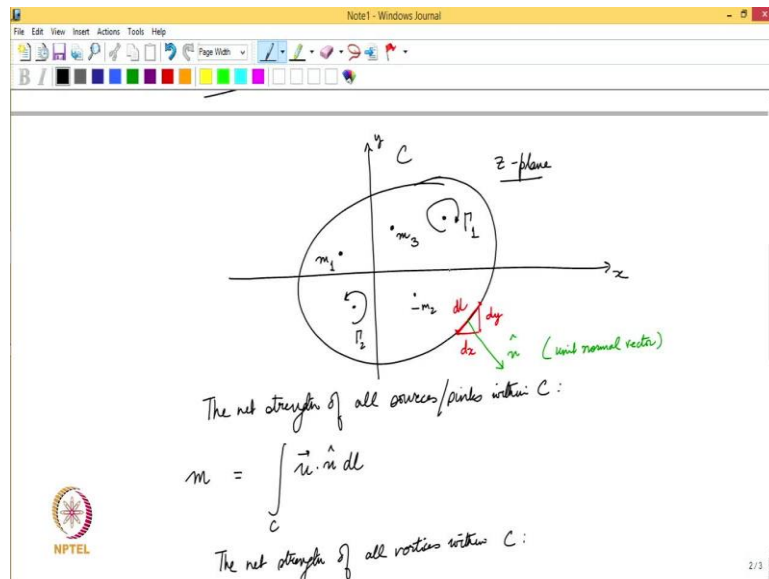 Note1 - Windows Journal
File Edit View Insert Actions Tools Help
Page Width
B I
y
C
z-plane
m1
m3
Γ1
x
Γ2
-m2
dl
dy
dx
n̂ (unit normal vector)
The net strength of all sources/sinks within C:
m = ∫C u⃗ . n̂ dl
The net strength of all vortices within C:
NPTEL
2/3